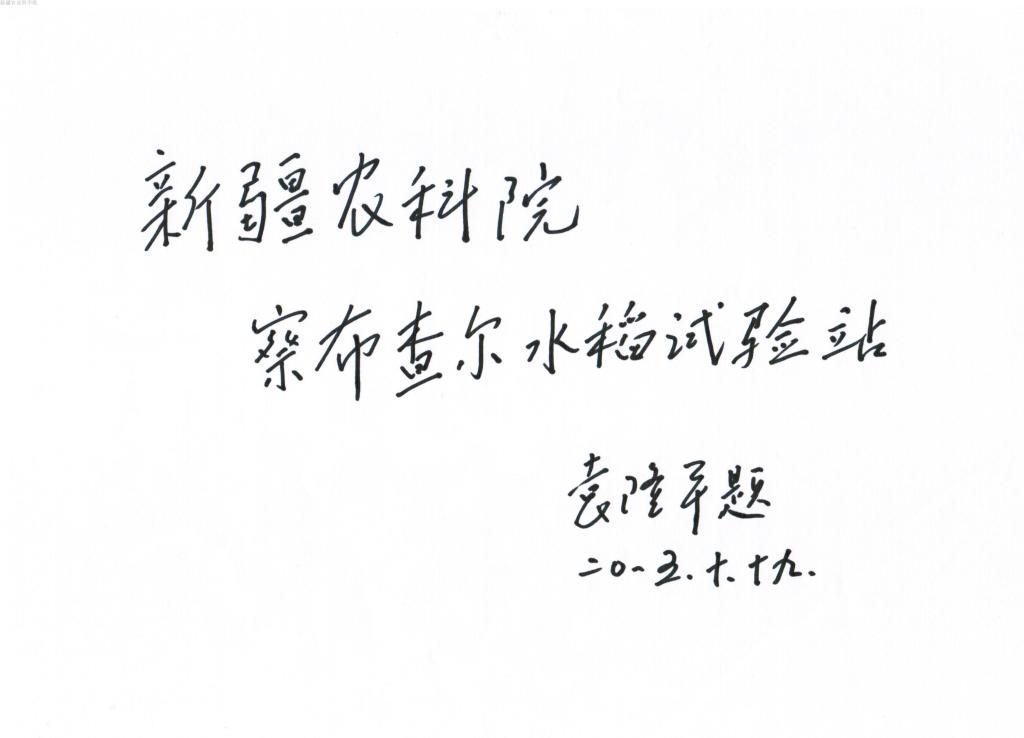 新疆农科院
察布查尔水稻试验站
袁隆平题
二〇一五.十.十九.